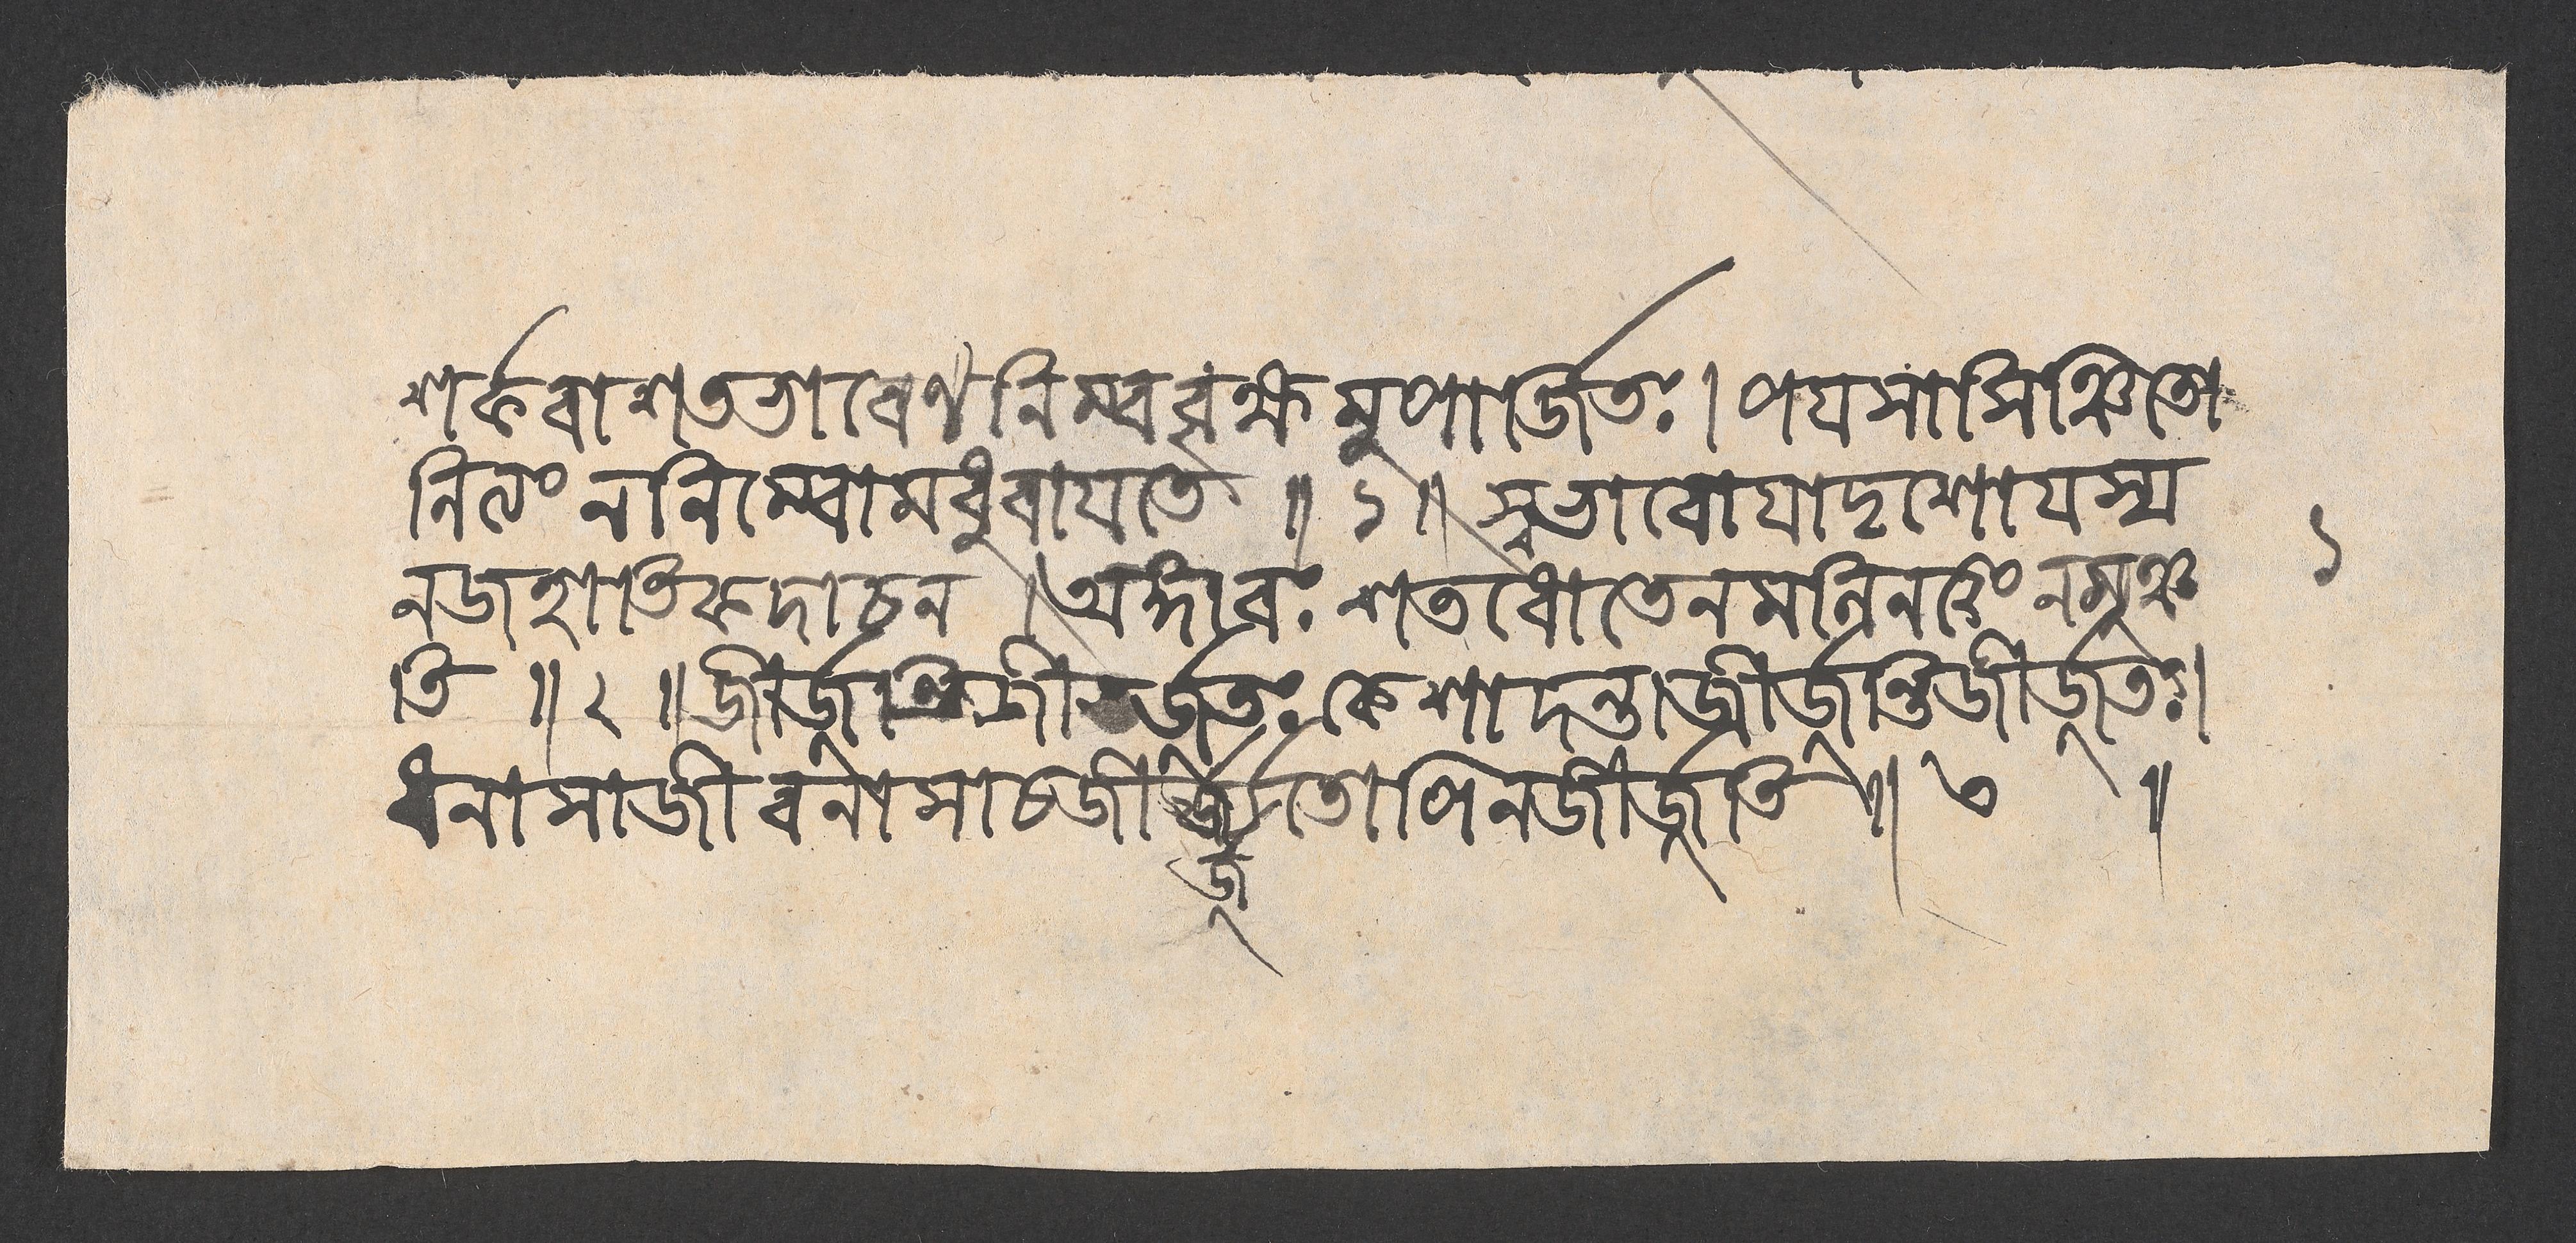 শর্করাশতভারেণনিম্ববৃক্ষমুপার্জ্জিতঃ। পযসাসিঞ্চিতো
নিত্যং ননিম্বোমধুরাযতে ॥ ১॥ স্বভাবোযাদৃশোযস্য
নজহাতিকদাচন । অঙ্গারঃ শতধৌতেনমলিনত্বং নমুঞ্চ
তি ॥ ২ ॥ জীর্জ্যন্তিজীর্জ্যতঃ কেশাদন্তাজীর্জ্যন্তিজীর্জ্যতঃ।
ধনাসাজীবনাসাচজীর্জ্যতোপিনজীর্জ্যতি ॥ ৩ ॥
র্জ্য
১